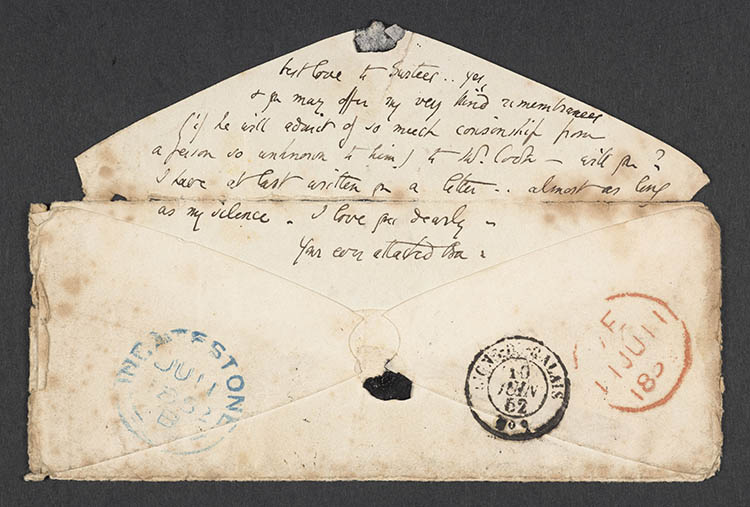 best love to Surtees.. yes,
& you may offer my very kind remembrances
(if he will admit of so much cousinship from
a person so unknown to him) to Mr. Cook - will you?
I have at last written you a letter.. almost as long
as my silence. I love you dearly -
Your ever attached Ba.
INGATESTONE
JU 11
1852
CALAIS
10
JUIN
52
No 2
E
11 JU 11
185